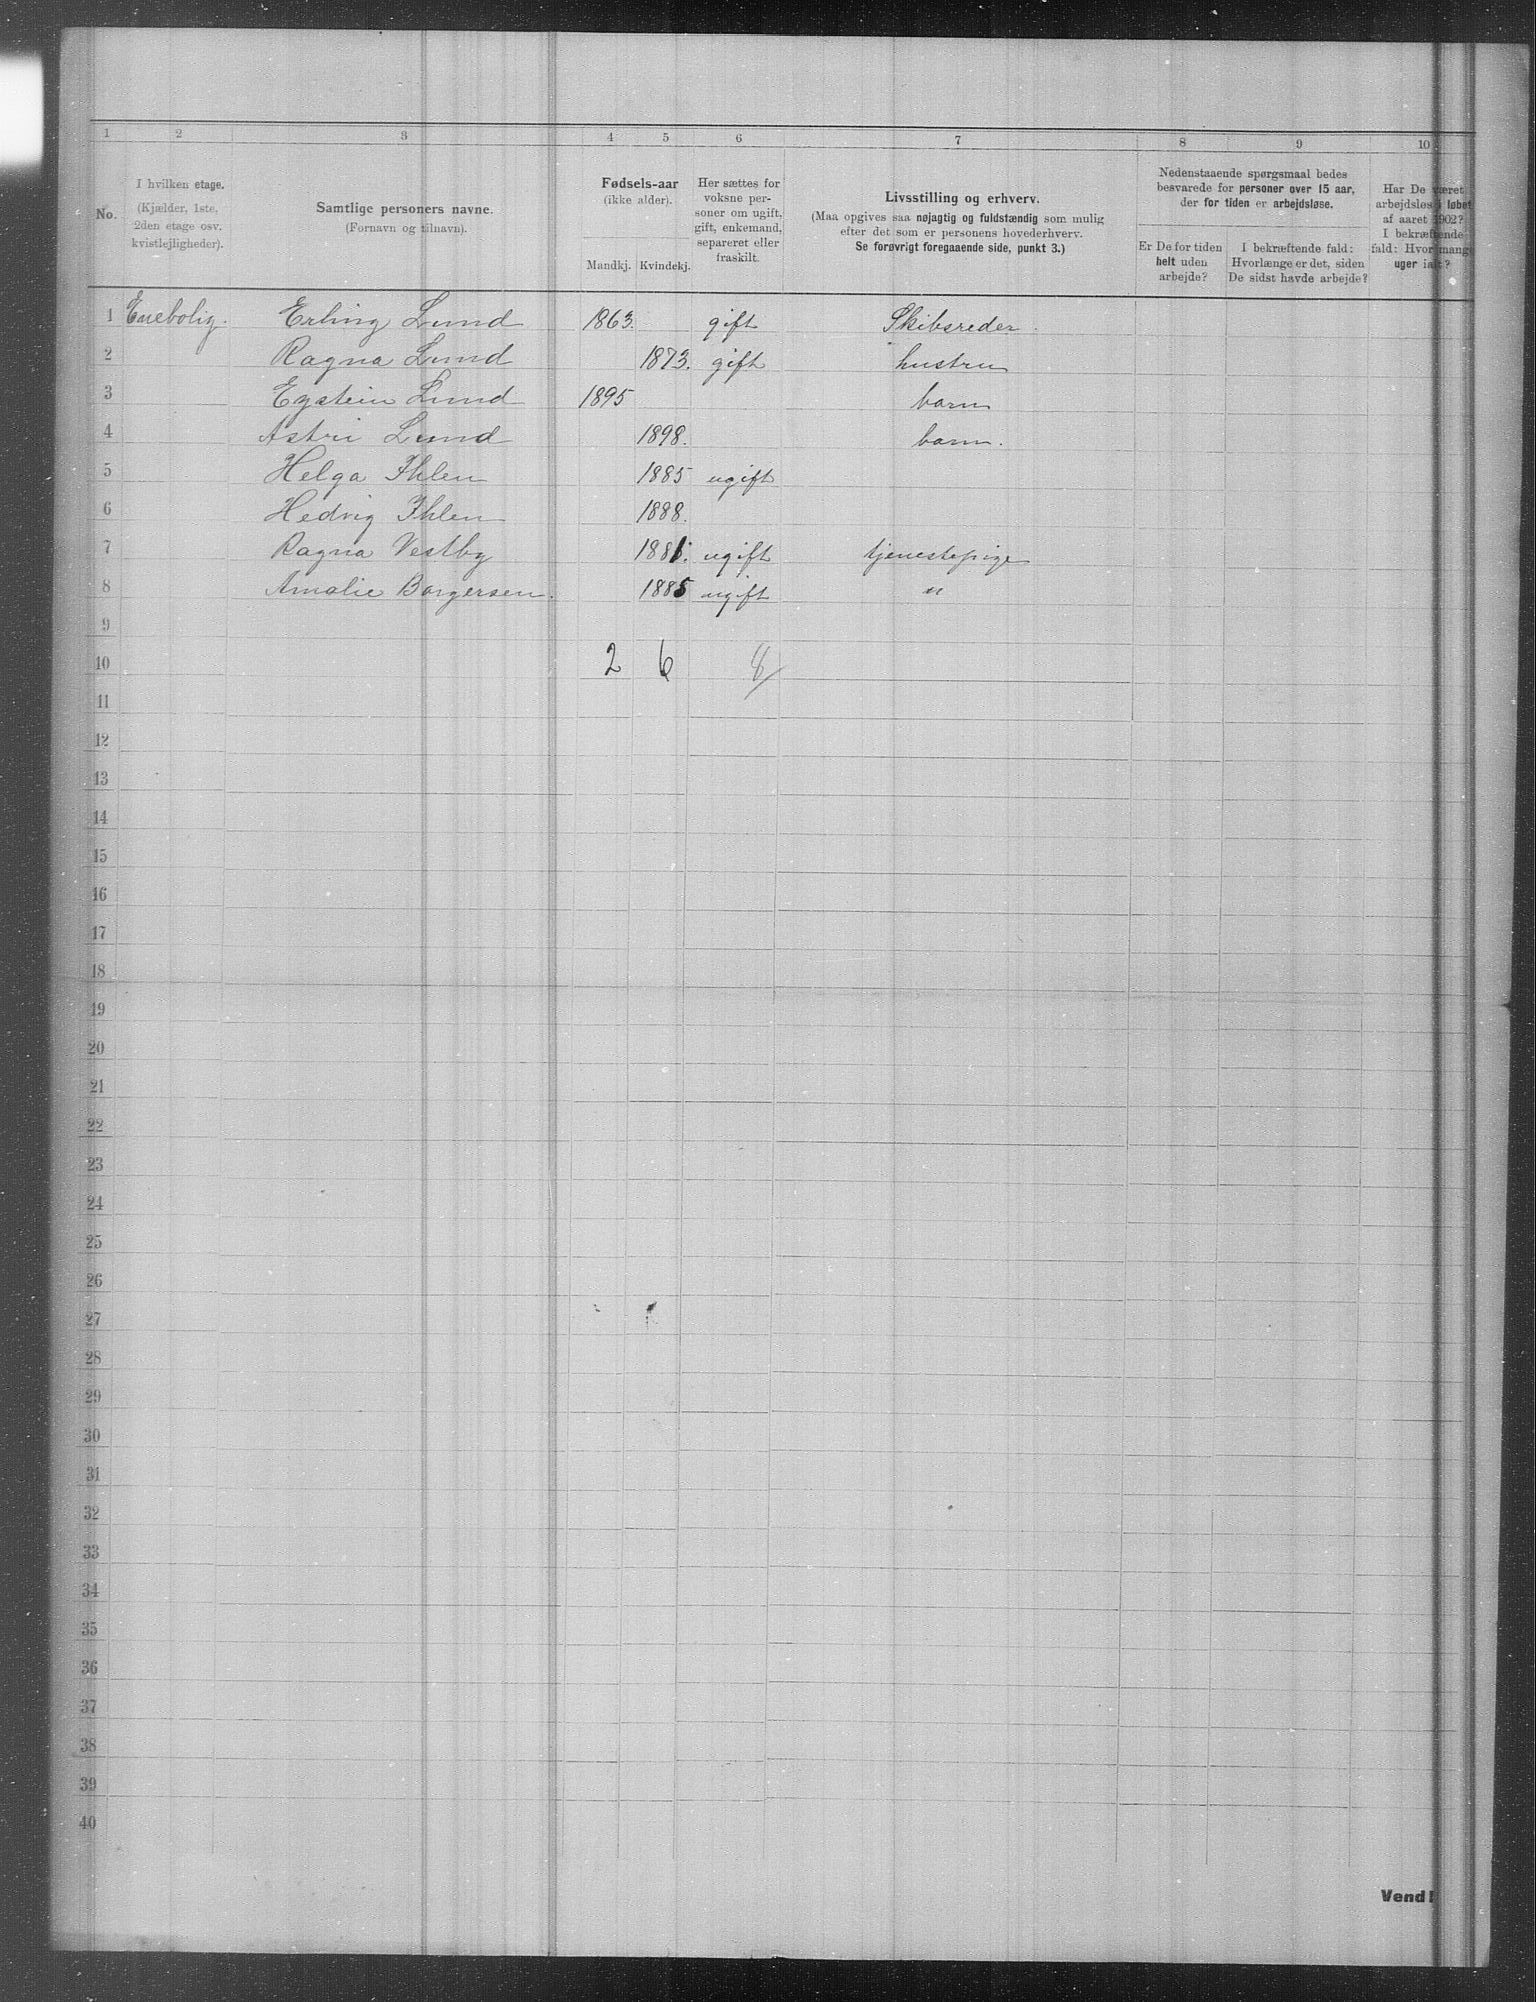 1 2 3 4 5 6 7 8 9 10
No.
I hvilken etage.
(Kjælder, 1ste,
2den etage osv.
kvistlejligheder).
Samtlige personers navne.
(Fornavn og tilnavn).
Fødsels-aar
(ikke alder).
Mandkj. Kvindekj.
Her sættes for
voksne per-
soner om ugift,
gift, enkemand,
separeret eller
fraskilt.
Livsstilling og erhverv.
(Maa opgives saa nøjagtig og fuldstændig som mulig
efter det som er personens hovederhverv.
Se forøvrigt foregaaende side, punkt 3.)
Nedenstaaende spørgsmaal bedes
besvarede for personer over 15 aar,
der for tiden er arbejdsløse.
Er De for tiden
helt uden
arbejde?
I bekræftende fald:
Hvorlænge er det, siden
De sidst havde arbejde?
Har De været
arbejdsløs i løbet
af aaret 1902?
I bekræftende
fald: Hvor mange
uger ialt?
1 Enebolig. Erling Lund 1863. gift Skibsreder.
2 Ragna Lund 1873. gift hustru
3 Eystein Lund 1895 barn
4 Astri Lund 1898. barn.
5 Helga Ihlen 1885 ugift
6 Hedvig Ihlen 1888.
7 Ragna Vestby 1881. ugift tjenestepige
8 Amalie Borgersen. 1885 ugift "
9
10 2 6 8
11
12
13
14
15
16
17
18
19
20
21
22
23
24
25
26
27
28
29
30
31
32
33
34
35
36
37
38
39
40
Vend!